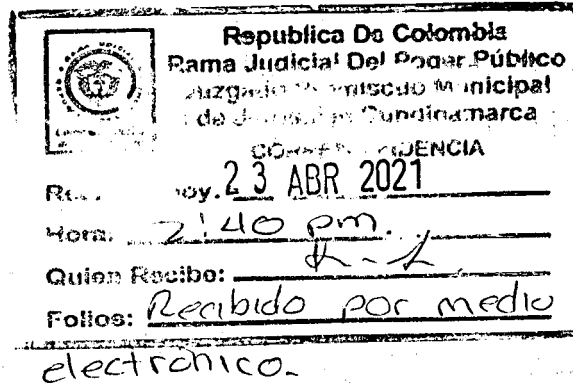 Republica De Colombia
Rama Judicial Del Poder Público
Juzgado Promiscuo Municipal
de Cundinamarca
CORRESPONDENCIA
hoy. 23 ABR 2021
Hora: 2:40 pm.
Quien Recibe:
Folios: Recibido por medio
electronico.